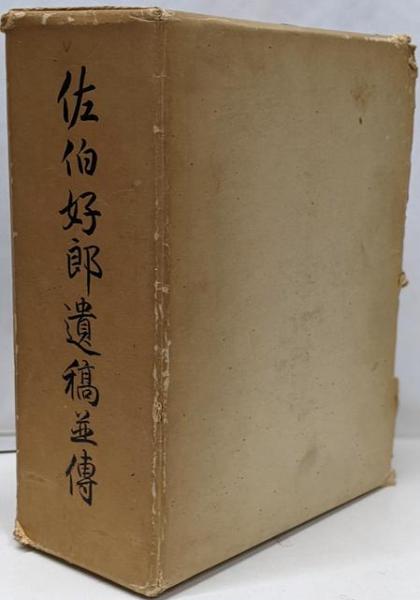 佐伯好郎遺稿並傳